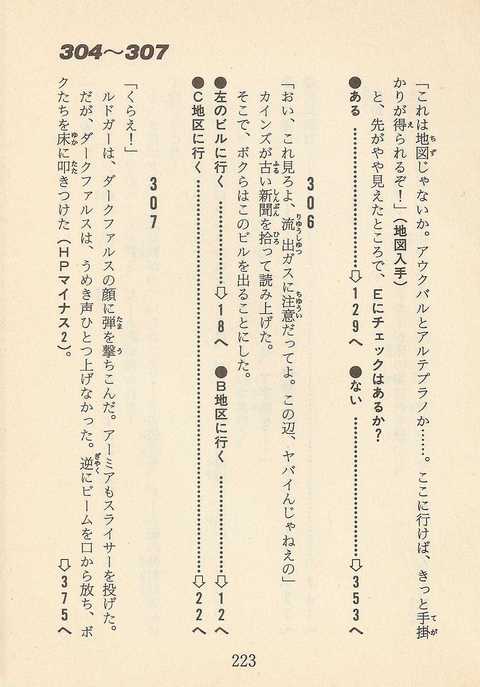 304〜307
「これは地図じゃないか。アウクバルとアルテプラノか……。ここに行けば、きっと手掛
かりが得られるぞ！」（地図入手）
と、先がやや見えたところで、Eにチェックはあるか？
●ある ……………⇨129へ ●ない ……………⇨353へ
306
「おい、これ見ろよ、流出ガスに注意だってよ。この辺、ヤバイんじゃねえの」
カインズが古い新聞を拾って読み上げた。
そこで、ボクらはこのビルを出ることにした。
●左のビルに行く ……………⇨18へ ●B地区に行く ……………⇨12へ
●C地区に行く ……………⇨22へ
307
「くらえ！」
ルドガーは、ダークファルスの顔に弾を撃ちこんだ。アーミアもスライサーを投げた。
だが、ダークファルスは、うめき声ひとつ上げなかった。逆にビームを口から放ち、ボ
クたちを床に叩きつけた（HPマイナス2）。
⇨375へ
223